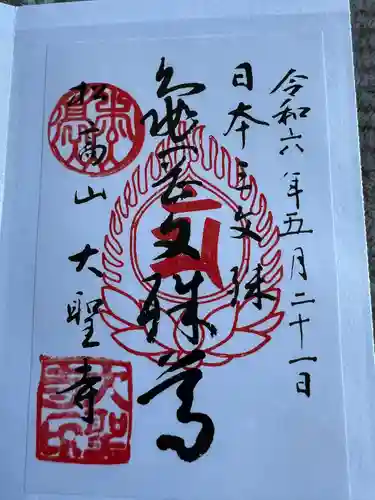 令和六年五月二十一日
日本三文殊
亀岡文殊尊
松高山 大聖寺